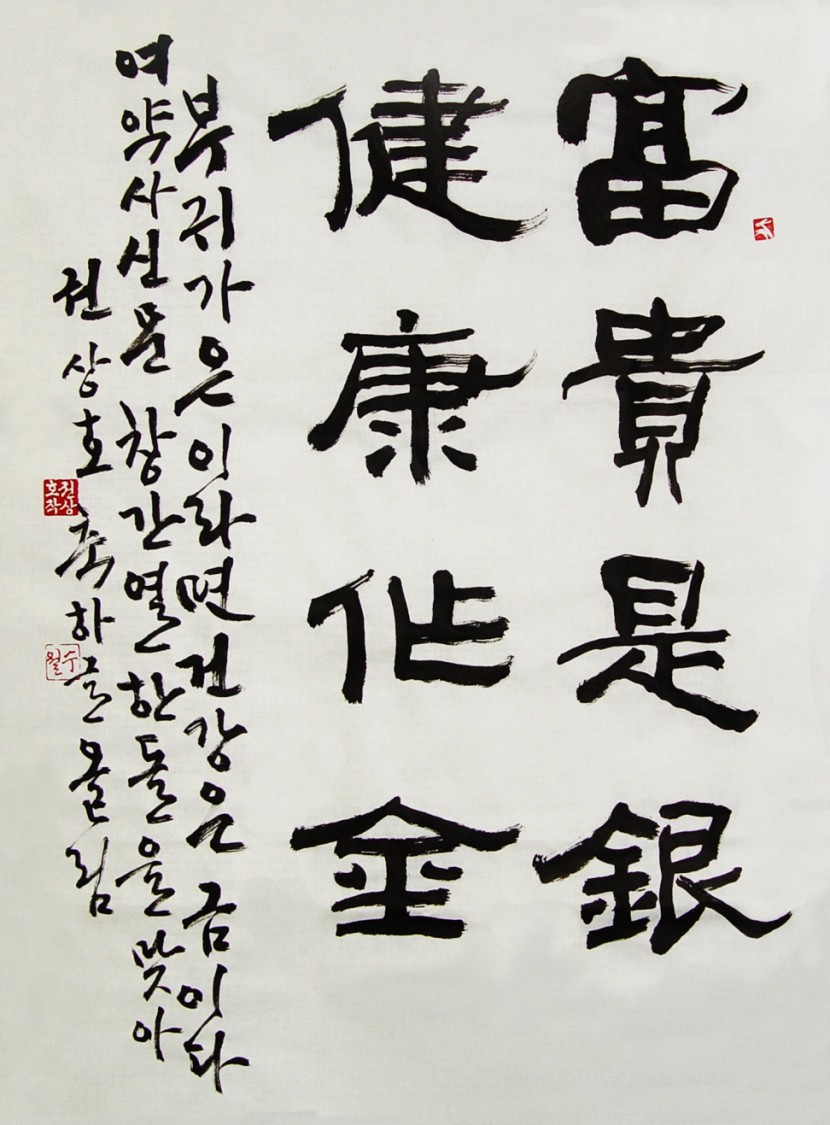 富貴是銀
健康作金
부귀가은이라면건강은금이다
여약사신문창간열한돌을맞아
권상호축하글올림
권상호작
수월